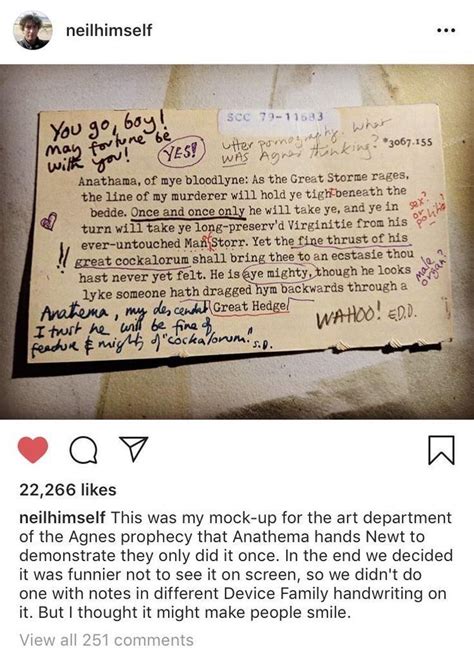 neilhimself
You go, boy!
May fortune be
with you!
YES!
SCC 79-11683
utter pornography. What
WAS Agnes thinking?
*3067.155
Anathama, of mye bloodlyne: As the Great Storme rages,
the line of my murderer will hold ye tight beneath the
bedde. Once and once only he will take ye, and ye in
turn will take ye long-preserv'd Virginitie from his
ever-untouched Man Storr. Yet the fine thrust of his
great cockalorum shall bring thee to an ecstasie thou
hast never yet felt. He is aye mighty, though he looks
lyke someone hath dragged hym backwards through a
Great Hedge!
sex?
or
politics
!!
male
organ?
Anathema, my descendant
I trust he will be fine of
feature & mighty of "cockalorum". S.D.
WAHOO! E.D.D.
22,266 likes
neilhimself This was my mock-up for the art department
of the Agnes prophecy that Anathema hands Newt to
demonstrate they only did it once. In the end we decided
it was funnier not to see it on screen, so we didn't do
one with notes in different Device Family handwriting on
it. But I thought it might make people smile.
View all 251 comments